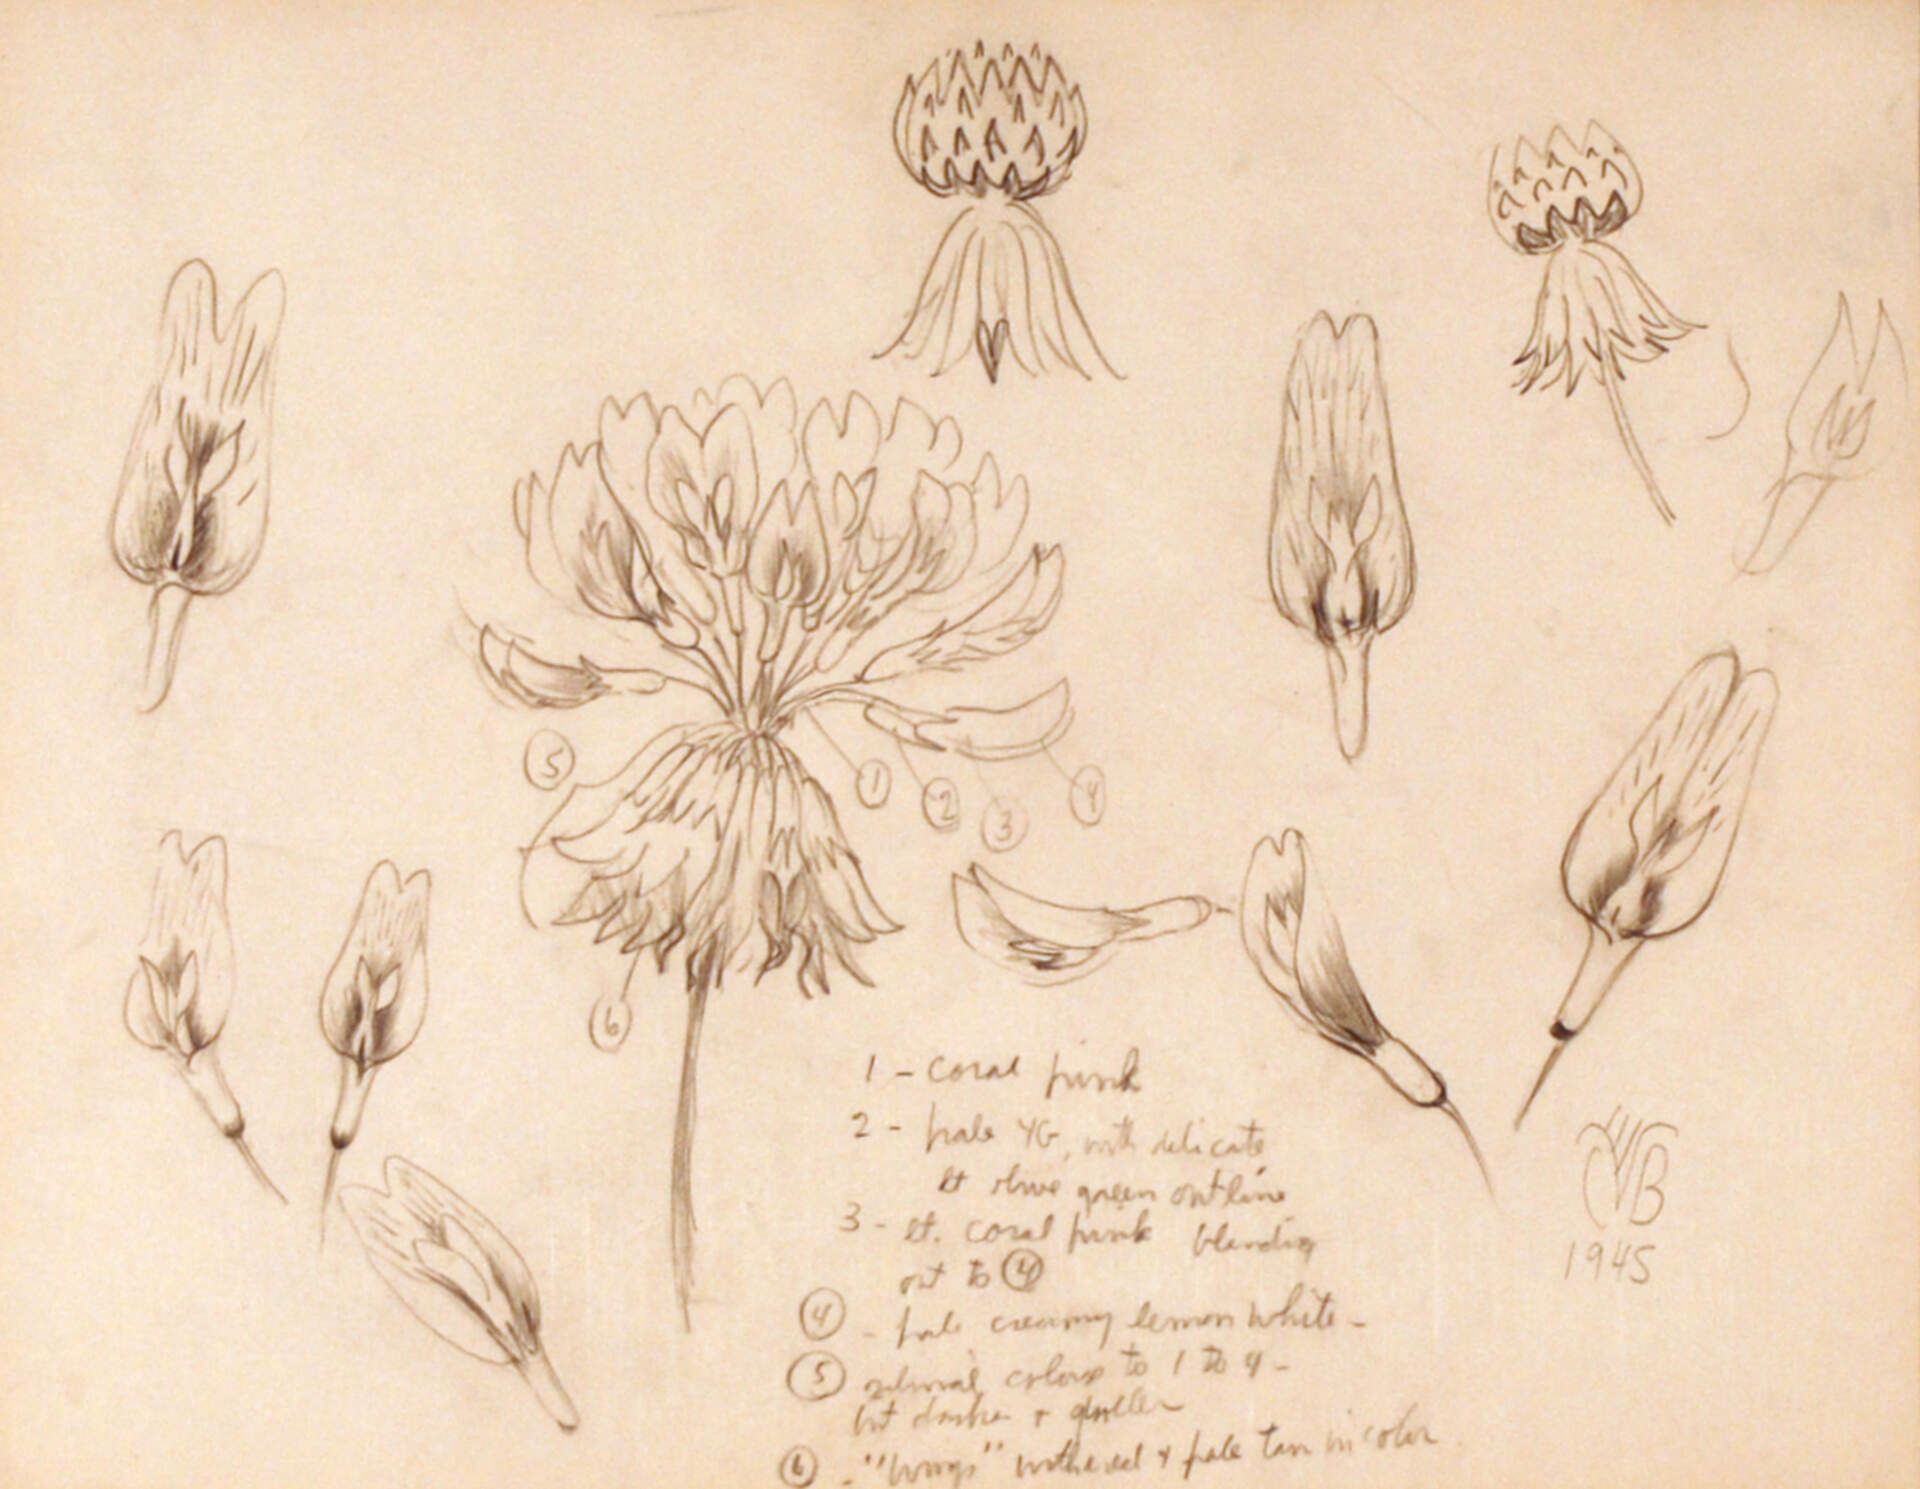 5
1
2
3
4
6
1 - coral pink
2 - pale YG, with delicate
lt olive green outline
3 - lt. coral pink blending
out to 4
4 - pale creamy lemon white -
5 colors to 1 to 4 -
but darker &
6 - "wings" withered & pale tan in color
CVB
1945